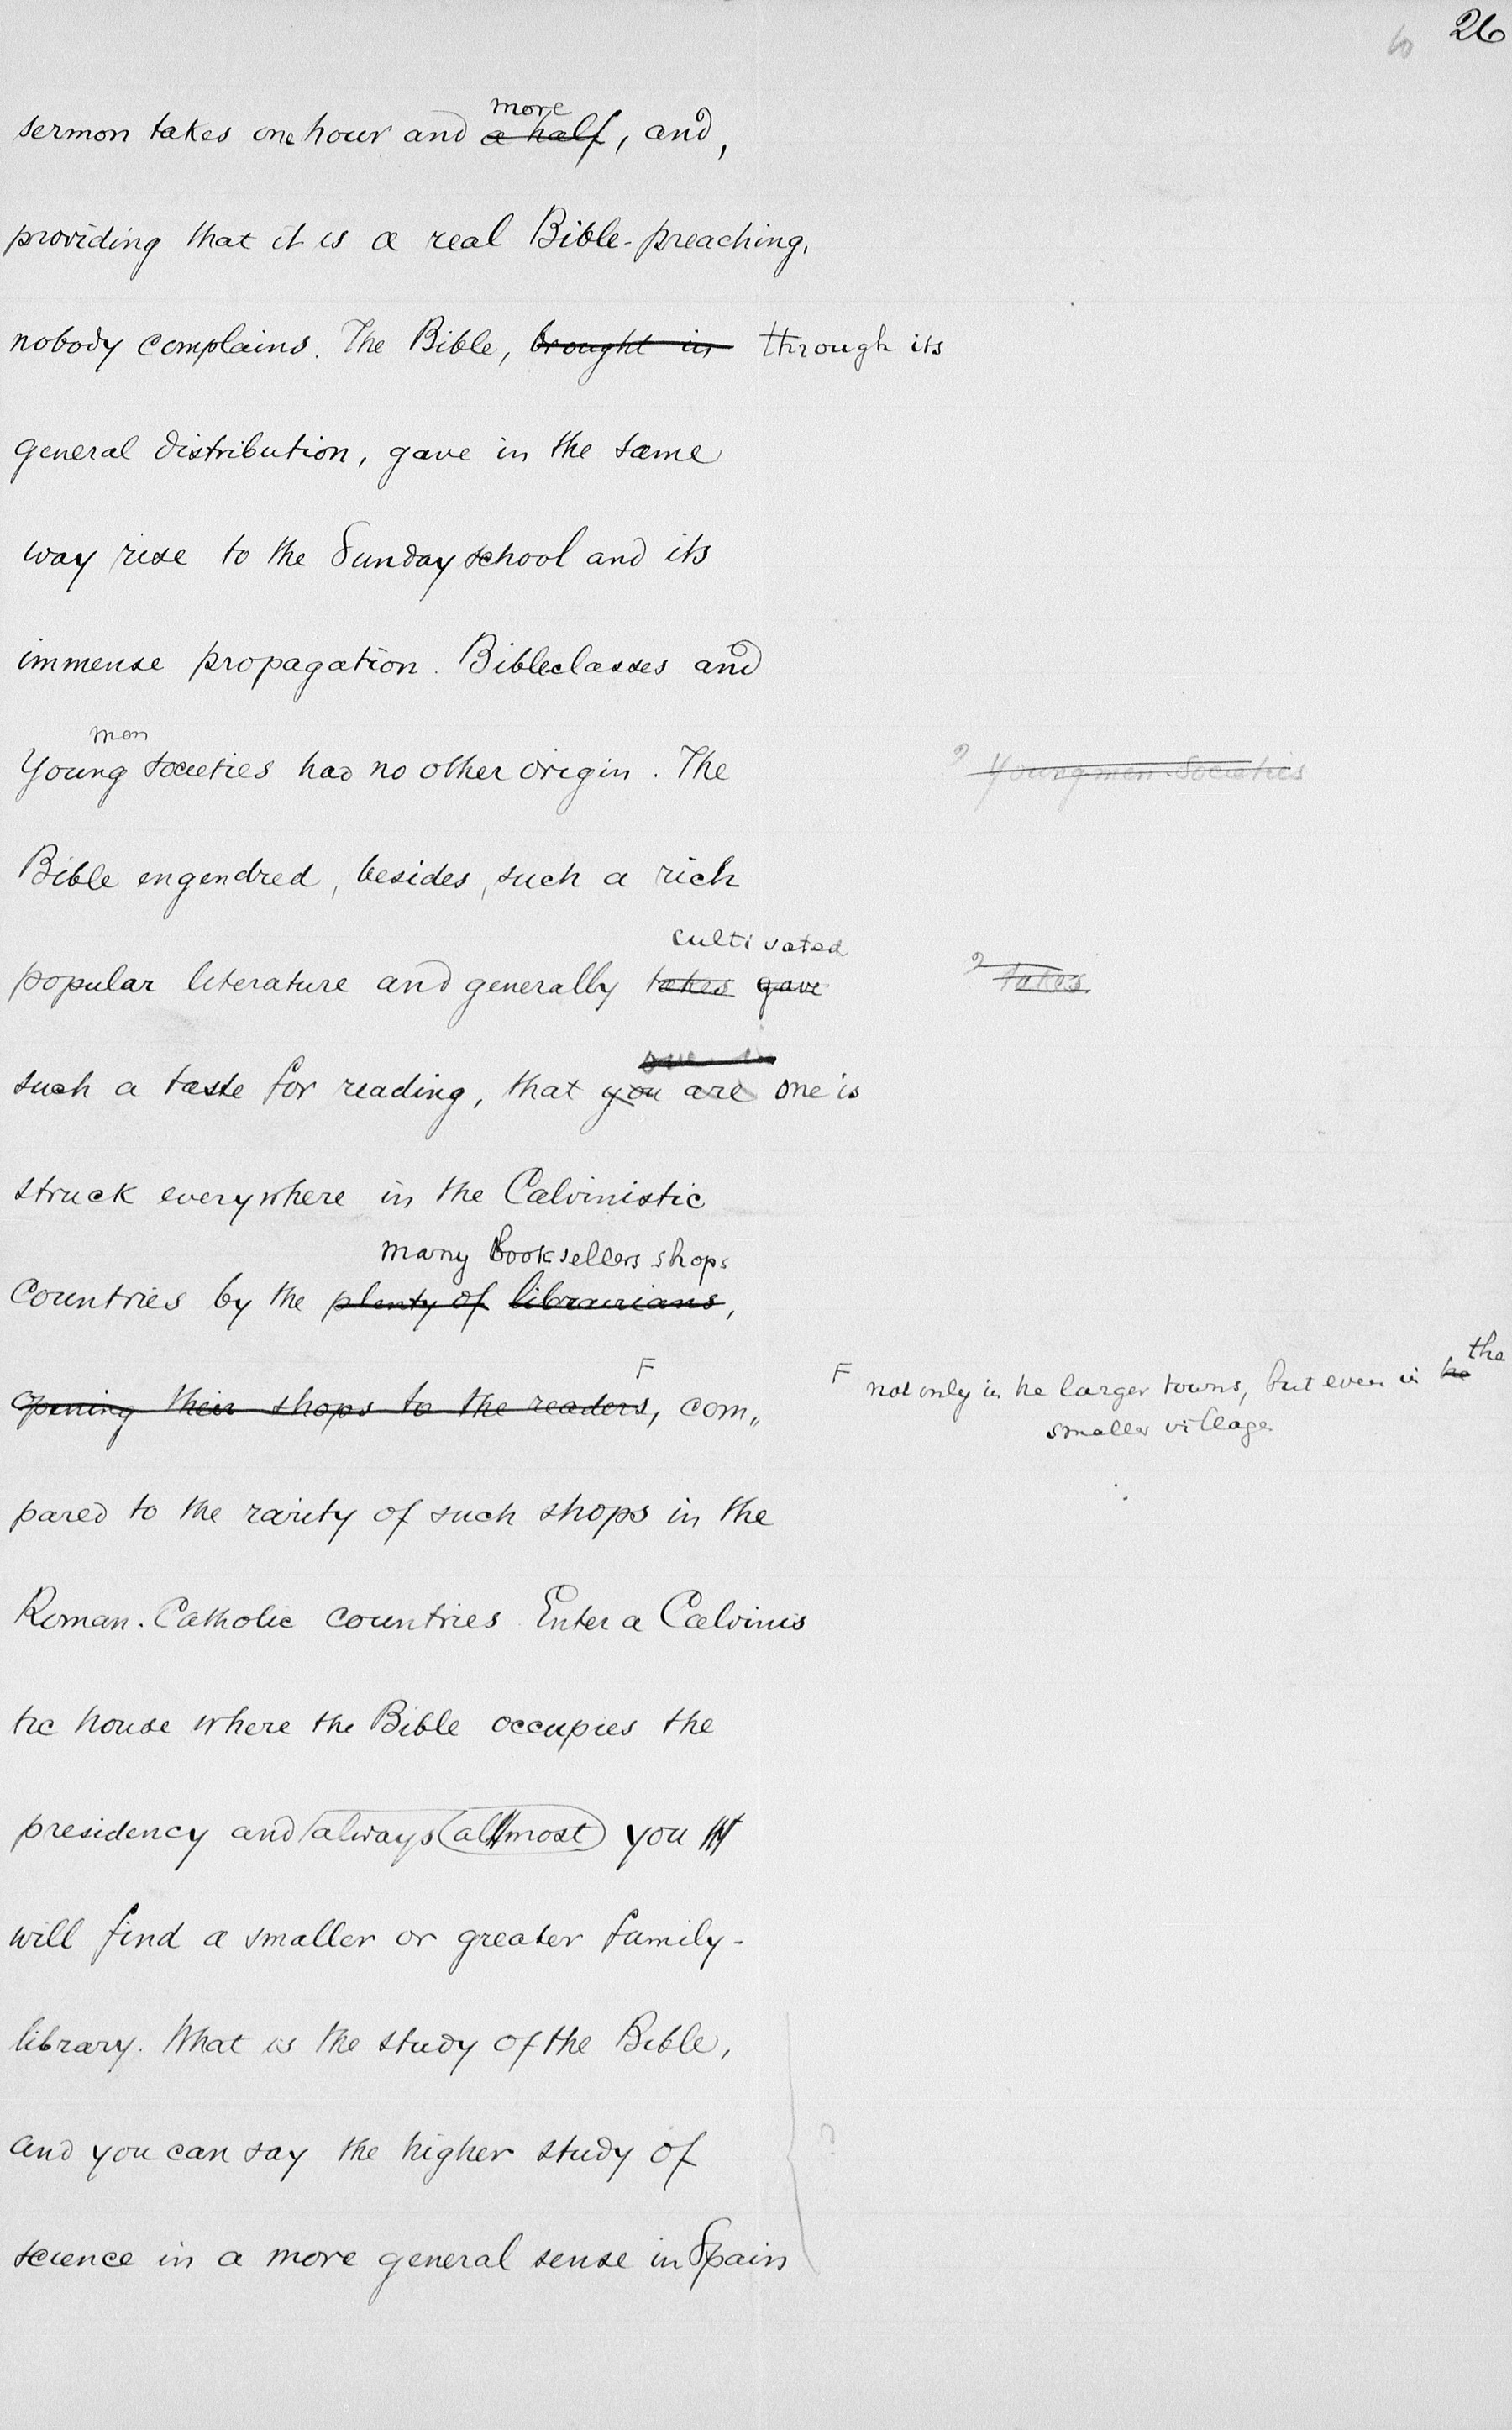 26
more
sermon takes one hour and a half, and,
providing that it is a real Bible-preaching,
nobody complains. The Bible, brought in through its
general distribution, gave in the same
way rise to the Sunday school and its
immense propagation. Bibleclasses and
men
Young societies had no other origin. The
? Youngmen-Societies
Bible engendred, besides, such a rich
cultivated
popular literature and generally takes gave
? takes
such a taste for reading, that you are one is
struck everywhere in the Calvinistic
many booksellers shops
countries by the plenty of librarians,
F
opening their shops to the readers, com„
F not only in he larger towns, but even in he the
smaller village
pared to the rarity of such shops in the
Roman-Catholic countries Enter a Calvinis
tic house where the Bible occupies the
presidency and always almost you
will find a smaller or greater family-
library. What is the study of the Bible,
and you can say the higher study of
?
science in a more general sense in Spain